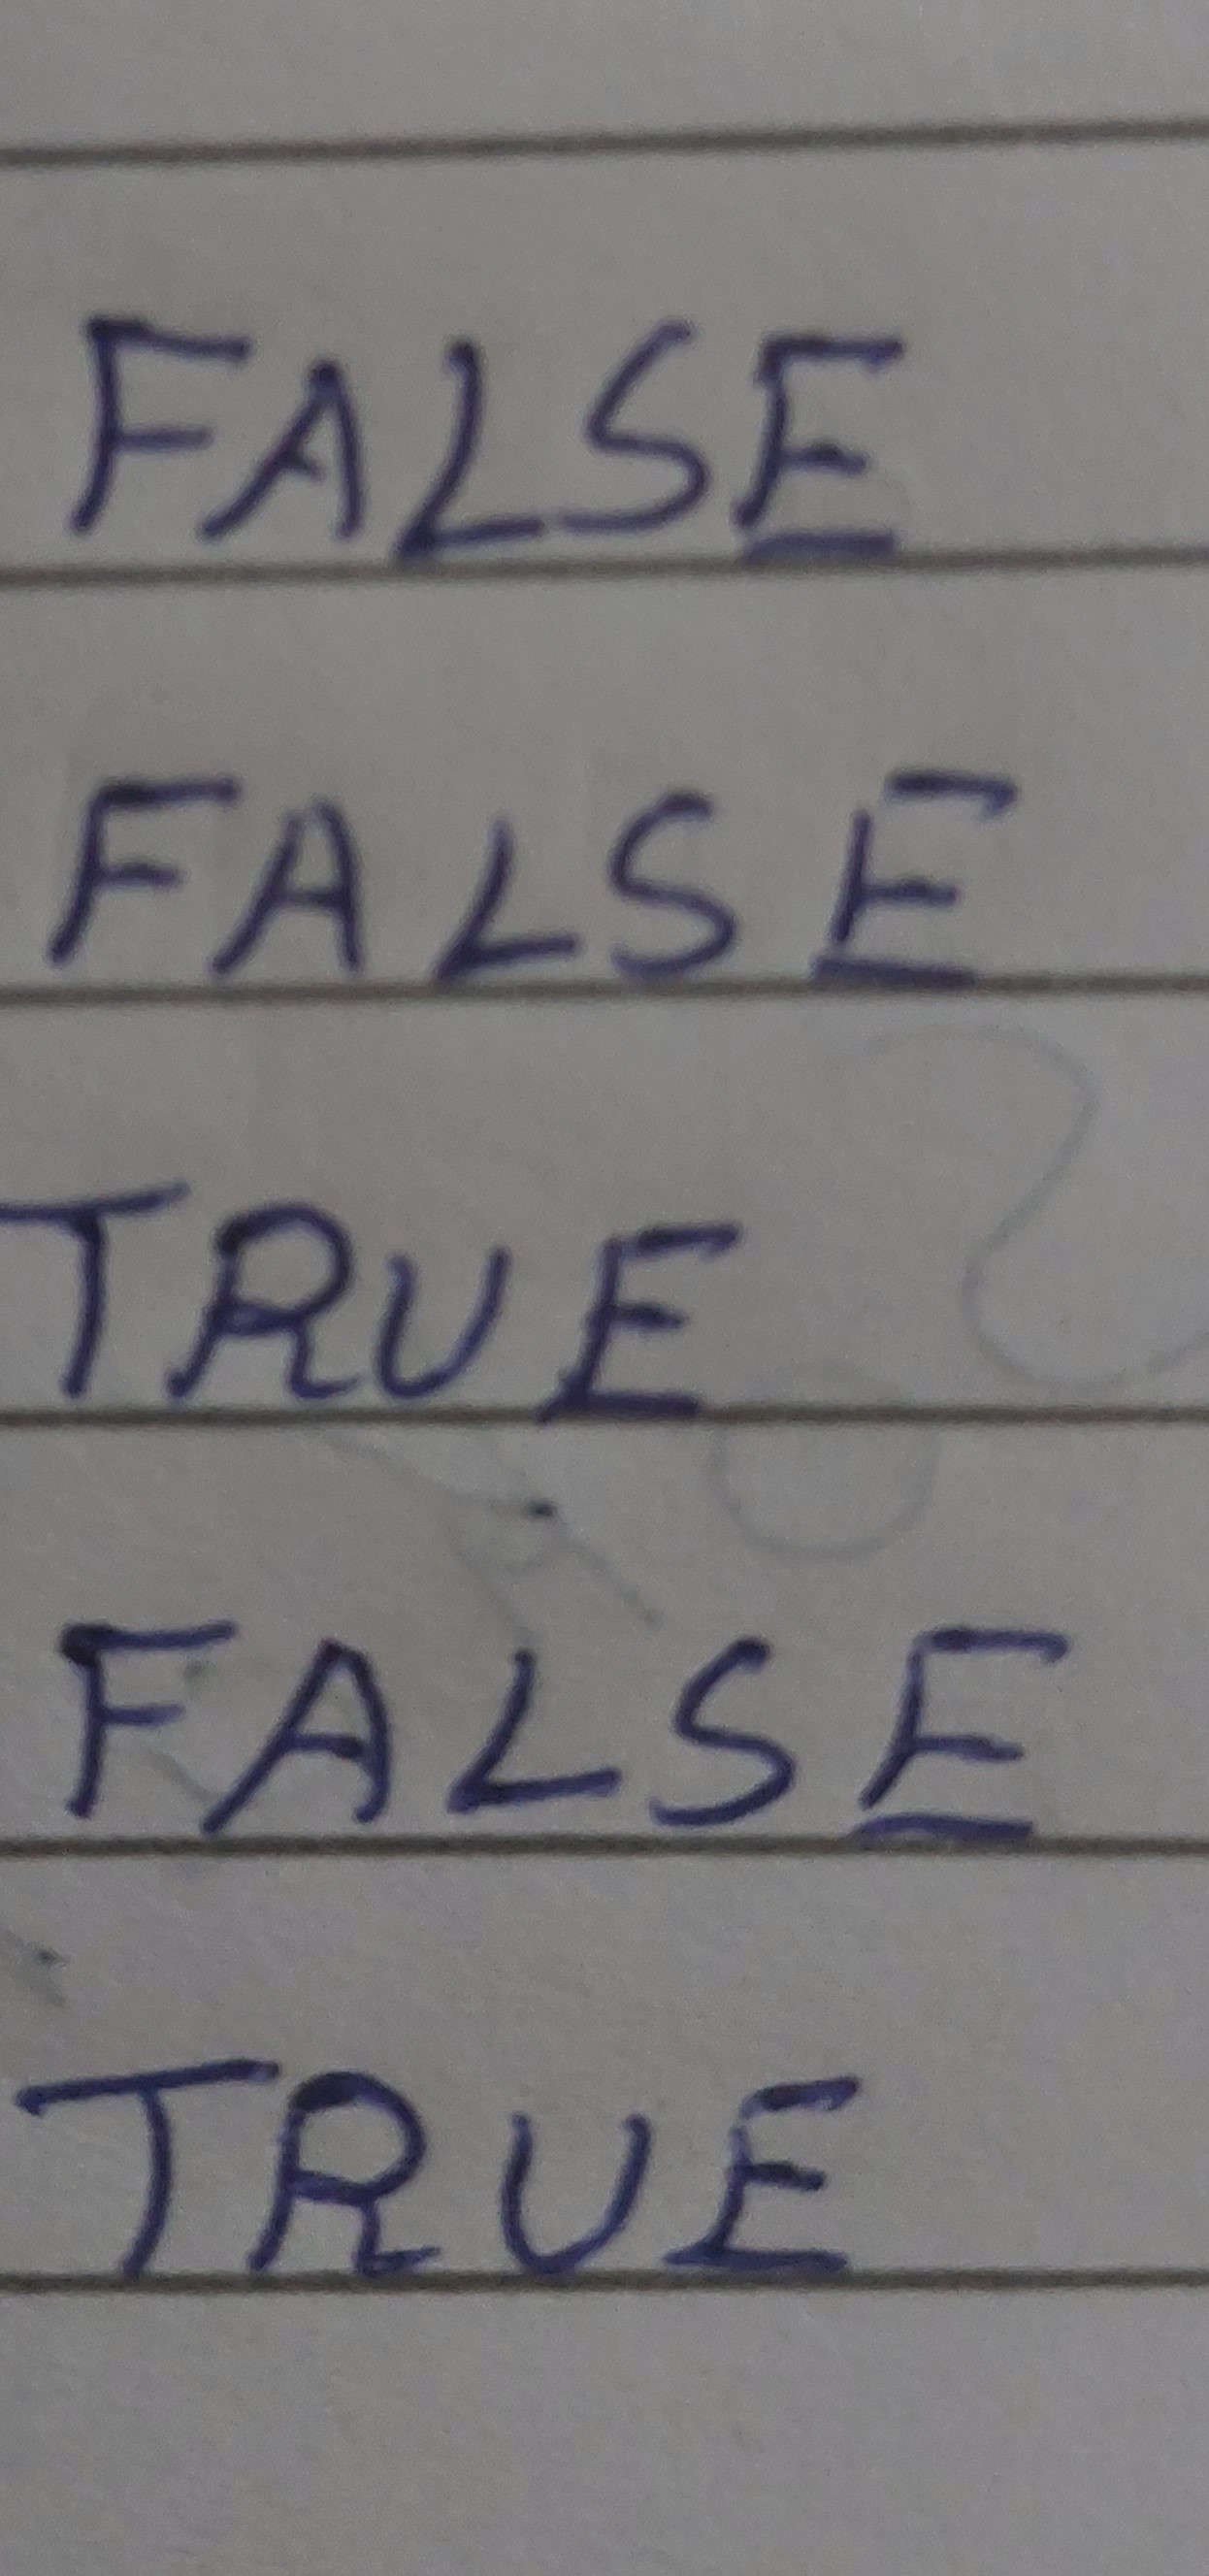 FALSE
FALSE
TRUE
FALSE
TRUE